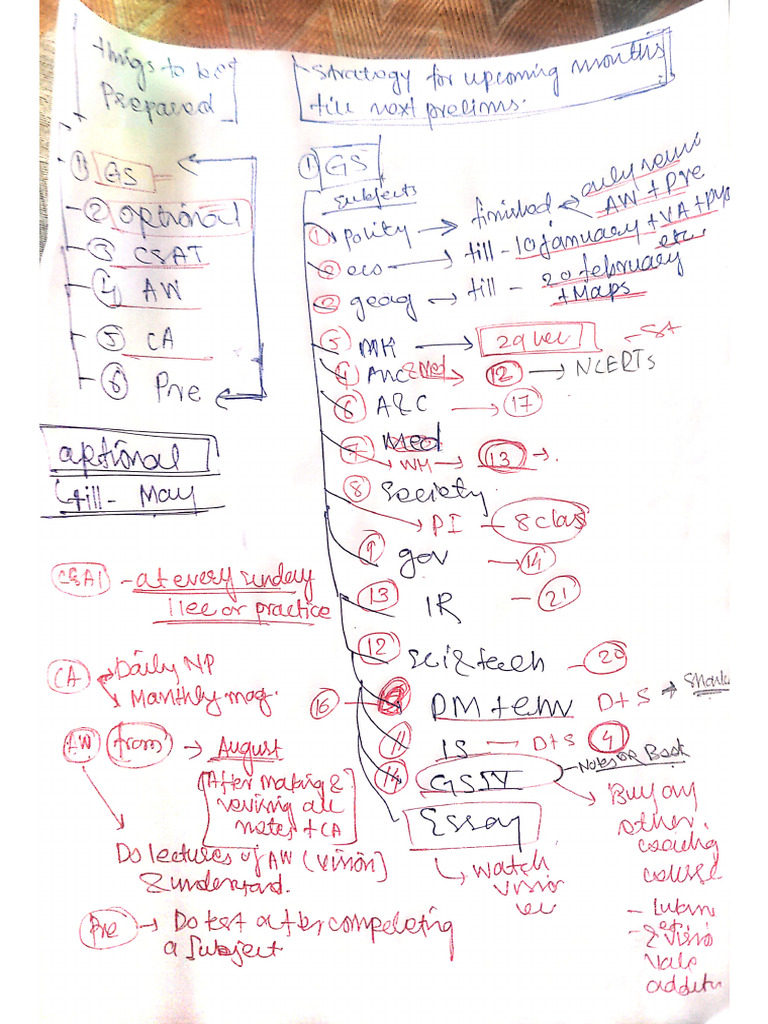 things to be
Prepared
① GS
② optional
③ CSAT
④ AW
⑤ CA
⑥ Pre
optional
till - May
CSAT - at every sunday
1 lec or practice
CA → Daily NP
→ Monthly mag.
AW from → August
(After making &
revising all
notes + CA
Do lectures of AW (vision)
& understand.
Pre → Do test after compeleting
a Subject
Strategy for upcoming months
till next prelims.
① GS
Subjects
① polity → finished
AW + Pre
② eco → till - 10 january + VA + PYQ
etc.
③ geog → till - 20 february
+ Maps
⑤ MH → 29 lec
④ Anc & Med → ⑫ → NCERTs
⑥ A&C → ⑰
⑦ Med
→ WH → ⑬ →
⑧ Society
→ PI - 8 clas
⑨ gov → ⑭
⑬ IR - ㉑
⑫ Sci & tech - ⑳
⑯ DM + env D+S →
⑪ IS - D+S ④
⑭ GS IV - Notes OR Book
→ Buy any
other
coaching
course
Essay
→ watch
vision
& visio
vale
additn